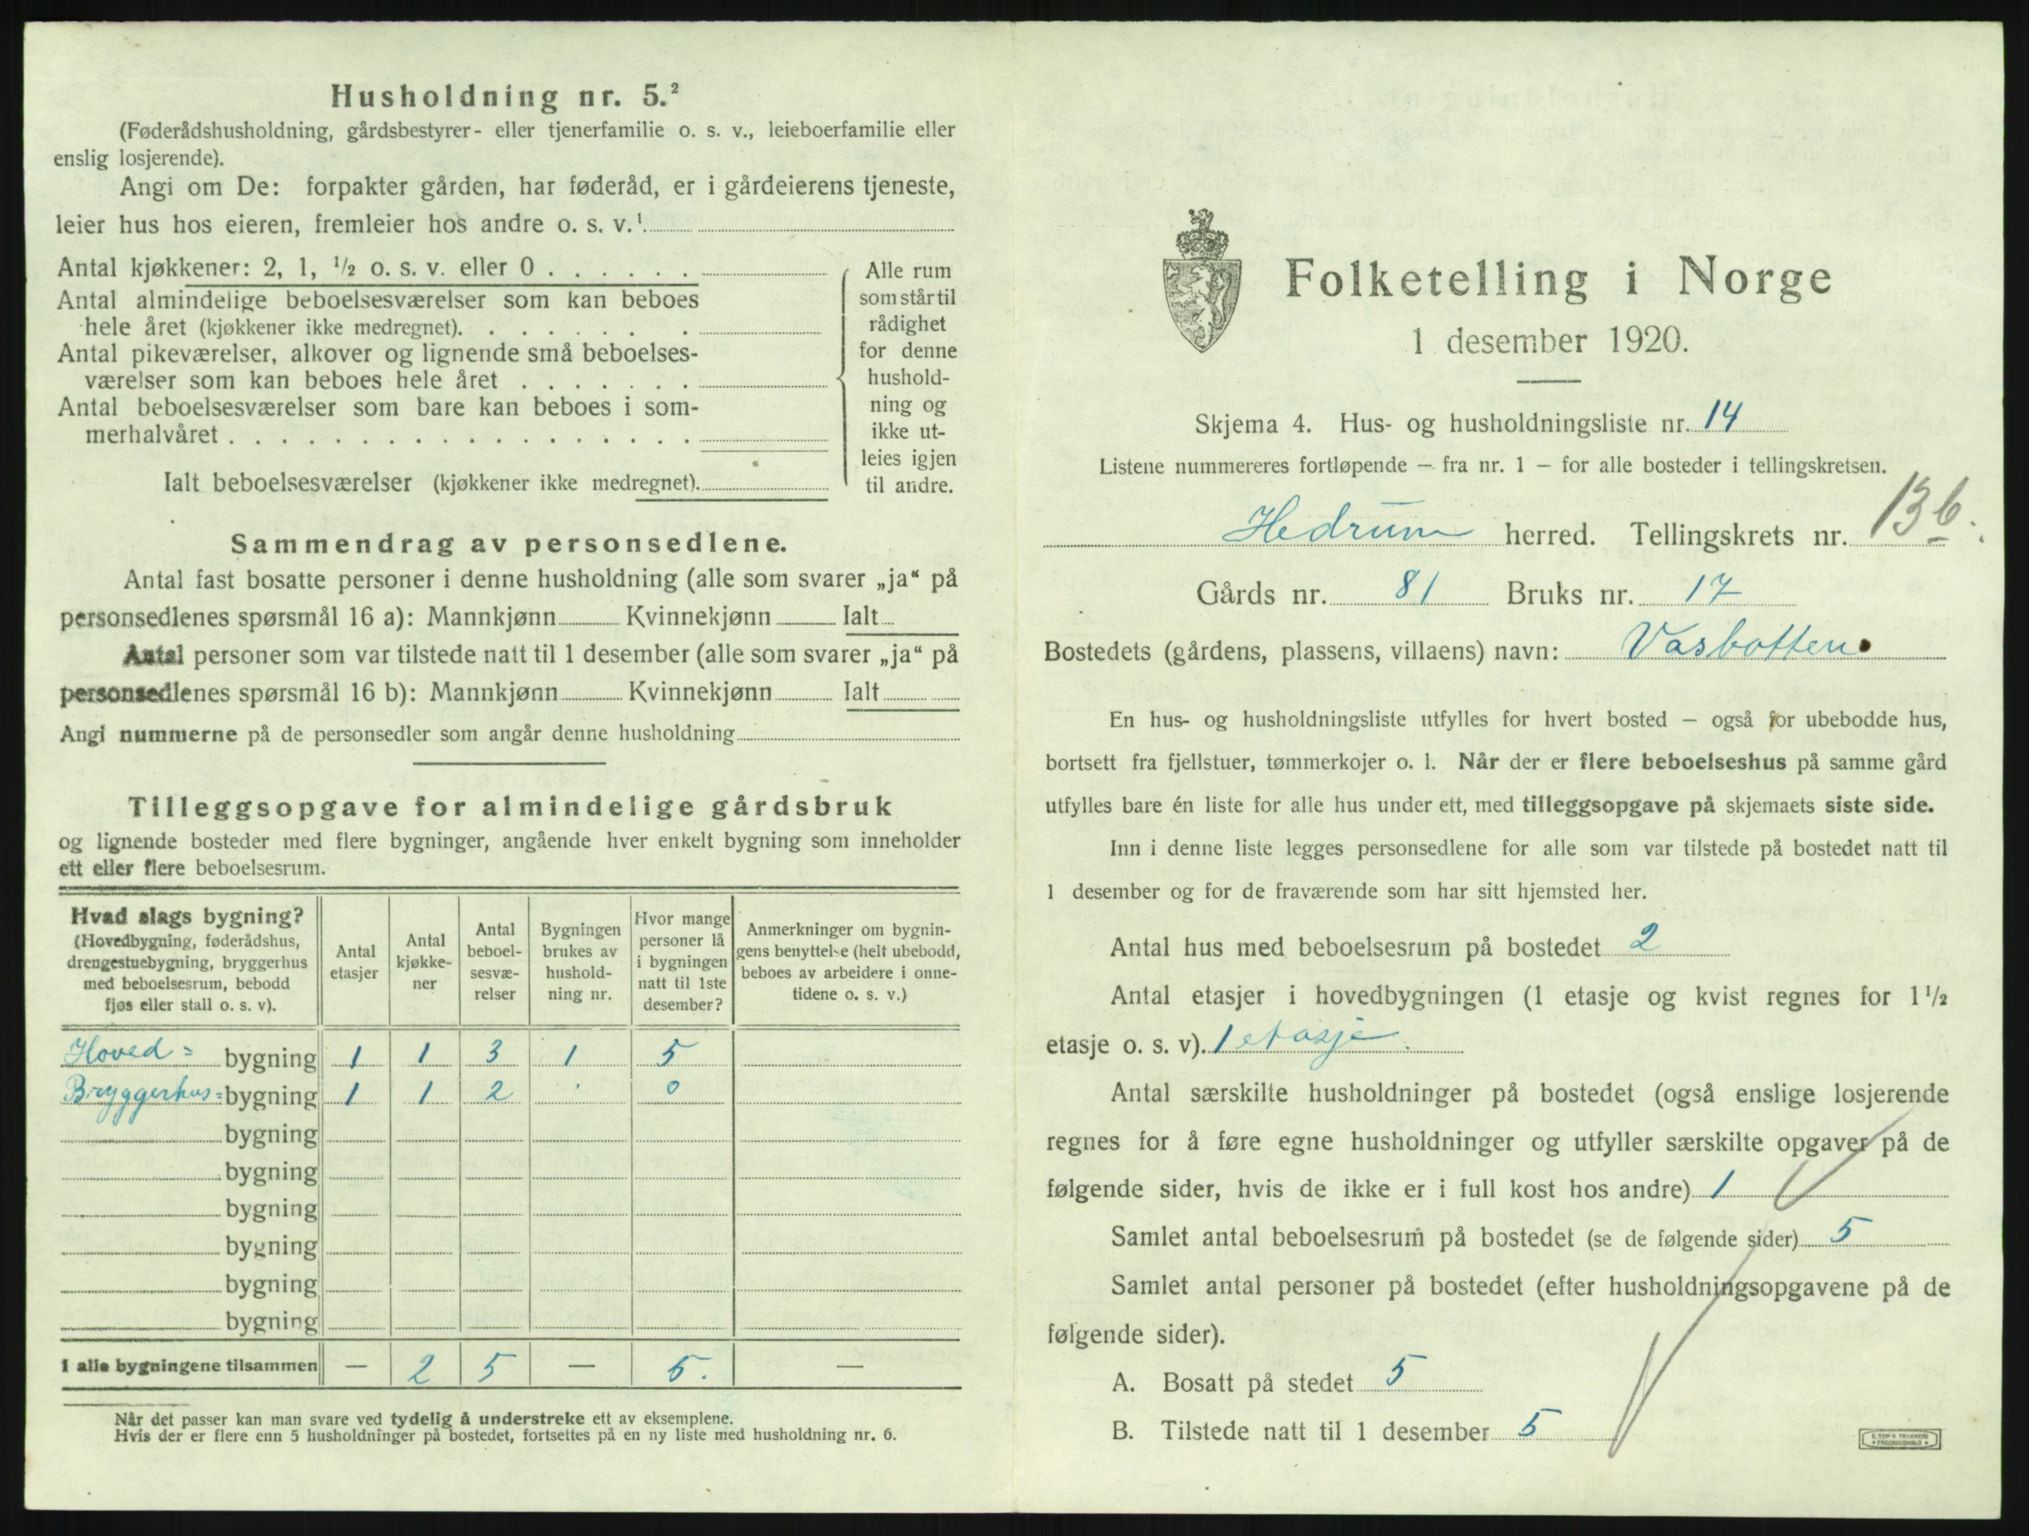 Husholdning nr. 5.²
(Føderådshusholdning, gårdsbestyrer- eller tjenerfamilie o. s. v., leieboerfamilie eller
enslig losjerende).
Angi om De: forpakter gården, har føderåd, er i gårdeierens tjeneste,
leier hus hos eieren, fremleier hos andre o. s. v.¹
Antal kjøkkener: 2, 1, ½ o. s. v. eller 0 . . . . . .
Antal almindelige beboelsesværelser som kan beboes
hele året (kjøkkener ikke medregnet). . . . . . . .
Antal pikeværelser, alkover og lignende små beboelses-
værelser som kan beboes hele året . . . . . . .
Antal beboelsesværelser som bare kan beboes i som-
merhalvåret . . . . . . . . . . . . . . . . . .
Ialt beboelsesværelser (kjøkkener ikke medregnet).
Alle rum
som står til
rådighet
for denne
hushold-
ning og
ikke ut-
leies igjen
til andre.
Sammendrag av personsedlene.
Antal fast bosatte personer i denne husholdning (alle som svarer „ja“ på
personsedlenes spørsmål 16 a): Mannkjønn Kvinnekjønn Ialt
Antal personer som var tilstede natt til 1 desember (alle som svarer „ja“ på
personsedlenes spørsmål 16 b): Mannkjønn Kvinnekjønn Ialt
Angi nummerne på de personsedler som angår denne husholdning
Tilleggsopgave for almindelige gårdsbruk
og lignende bosteder med flere bygninger, angående hver enkelt bygning som inneholder
ett eller flere beboelsesrum.
Hvad slags bygning?
(Hovedbygning, føderådshus,
drengestuebygning, bryggerhus
med beboelsesrum, bebodd
fjøs eller stall o. s. v).
Antal
etasjer
Antal
kjøkke-
ner
Antal
beboel-
sesvæ-
relser
Bygningen
brukes av
hushold-
ning nr.
Hvor mange
personer lå
i bygningen
natt til 1ste
desember?
Anmerkninger om bygnin-
gens benyttelse (helt ubebodd,
beboes av arbeidere i onne-
tidene o. s. v.)
Hoved= bygning 1 1 3 1 5
Bryggerhus= bygning 1 1 2 · 0
bygning
bygning
bygning
bygning
bygning
bygning
I alle bygningene tilsammen — 2 5 — 5. —
Når det passer kan man svare ved tydelig å understreke ett av eksemplene.
Hvis der er flere enn 5 husholdninger på bostedet, fortsettes på en ny liste med husholdning nr. 6.
Folketelling i Norge
1 desember 1920.
Skjema 4. Hus- og husholdningsliste nr. 14
Listene nummereres fortløpende – fra nr. 1 – for alle bosteder i tellingskretsen.
Hedrum herred. Tellingskrets nr. 13 b.
Gårds nr. 81 Bruks nr. 17
Bostedets (gårdens, plassens, villaens) navn: Vasbotten
En hus- og husholdningsliste utfylles for hvert bosted – også for ubebodde hus,
bortsett fra fjellstuer, tømmerkojer o. l. Når der er flere beboelseshus på samme gård
utfylles bare én liste for alle hus under ett, med tilleggsopgave på skjemaets siste side.
Inn i denne liste legges personsedlene for alle som var tilstede på bostedet natt til
1 desember og for de fraværende som har sitt hjemsted her.
Antal hus med beboelsesrum på bostedet 2
Antal etasjer i hovedbygningen (1 etasje og kvist regnes for 1½
etasje o. s. v). 1 etasje.
Antal særskilte husholdninger på bostedet (også enslige losjerende
regnes for å føre egne husholdninger og utfyller særskilte opgaver på de
følgende sider, hvis de ikke er i full kost hos andre) 1
Samlet antal beboelsesrum på bostedet (se de følgende sider) 5
Samlet antal personer på bostedet (efter husholdningsopgavene på de
følgende sider).
A. Bosatt på stedet 5
B. Tilstede natt til 1 desember 5